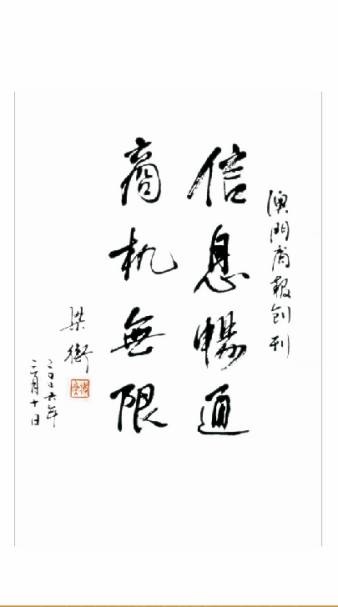 澳門商報创刊
信息暢通
商机無限
梁衡
二〇〇六年
月十日